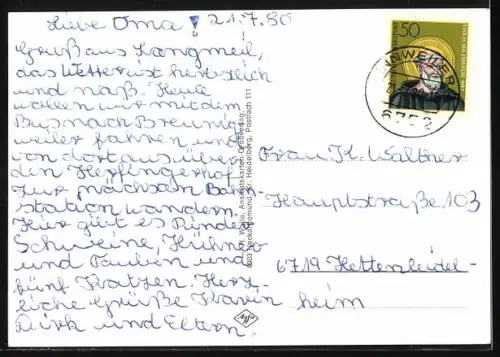 Liebe Oma! 21.7.80
Gruß aus Langmeil,
das Wetter ist herbstlich
und naß. Heute
wollen wir mit dem
Bus nach Breun
weiler fahren und
von dort aus über
den Herfingerhof
zur nächsten Bahn
station wandern.
Hier gibt es Rinder
Schweine, Hühner
und Tauben und
fünf Katzen. Herz-
liche Grüße Karin
Dirk und Eltern.
50
WINNWEILER
6752
Frau K. Walther
Hauptstraße 103
6719 Hettenleidel-
heim
Ansichtskarten-Großverlag,
Heidelberg, Postfach 111
Agfa